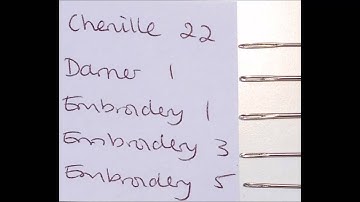 Chenille 22
Darner 1
Embroidery 1
Embroidery 3
Embroidery 5